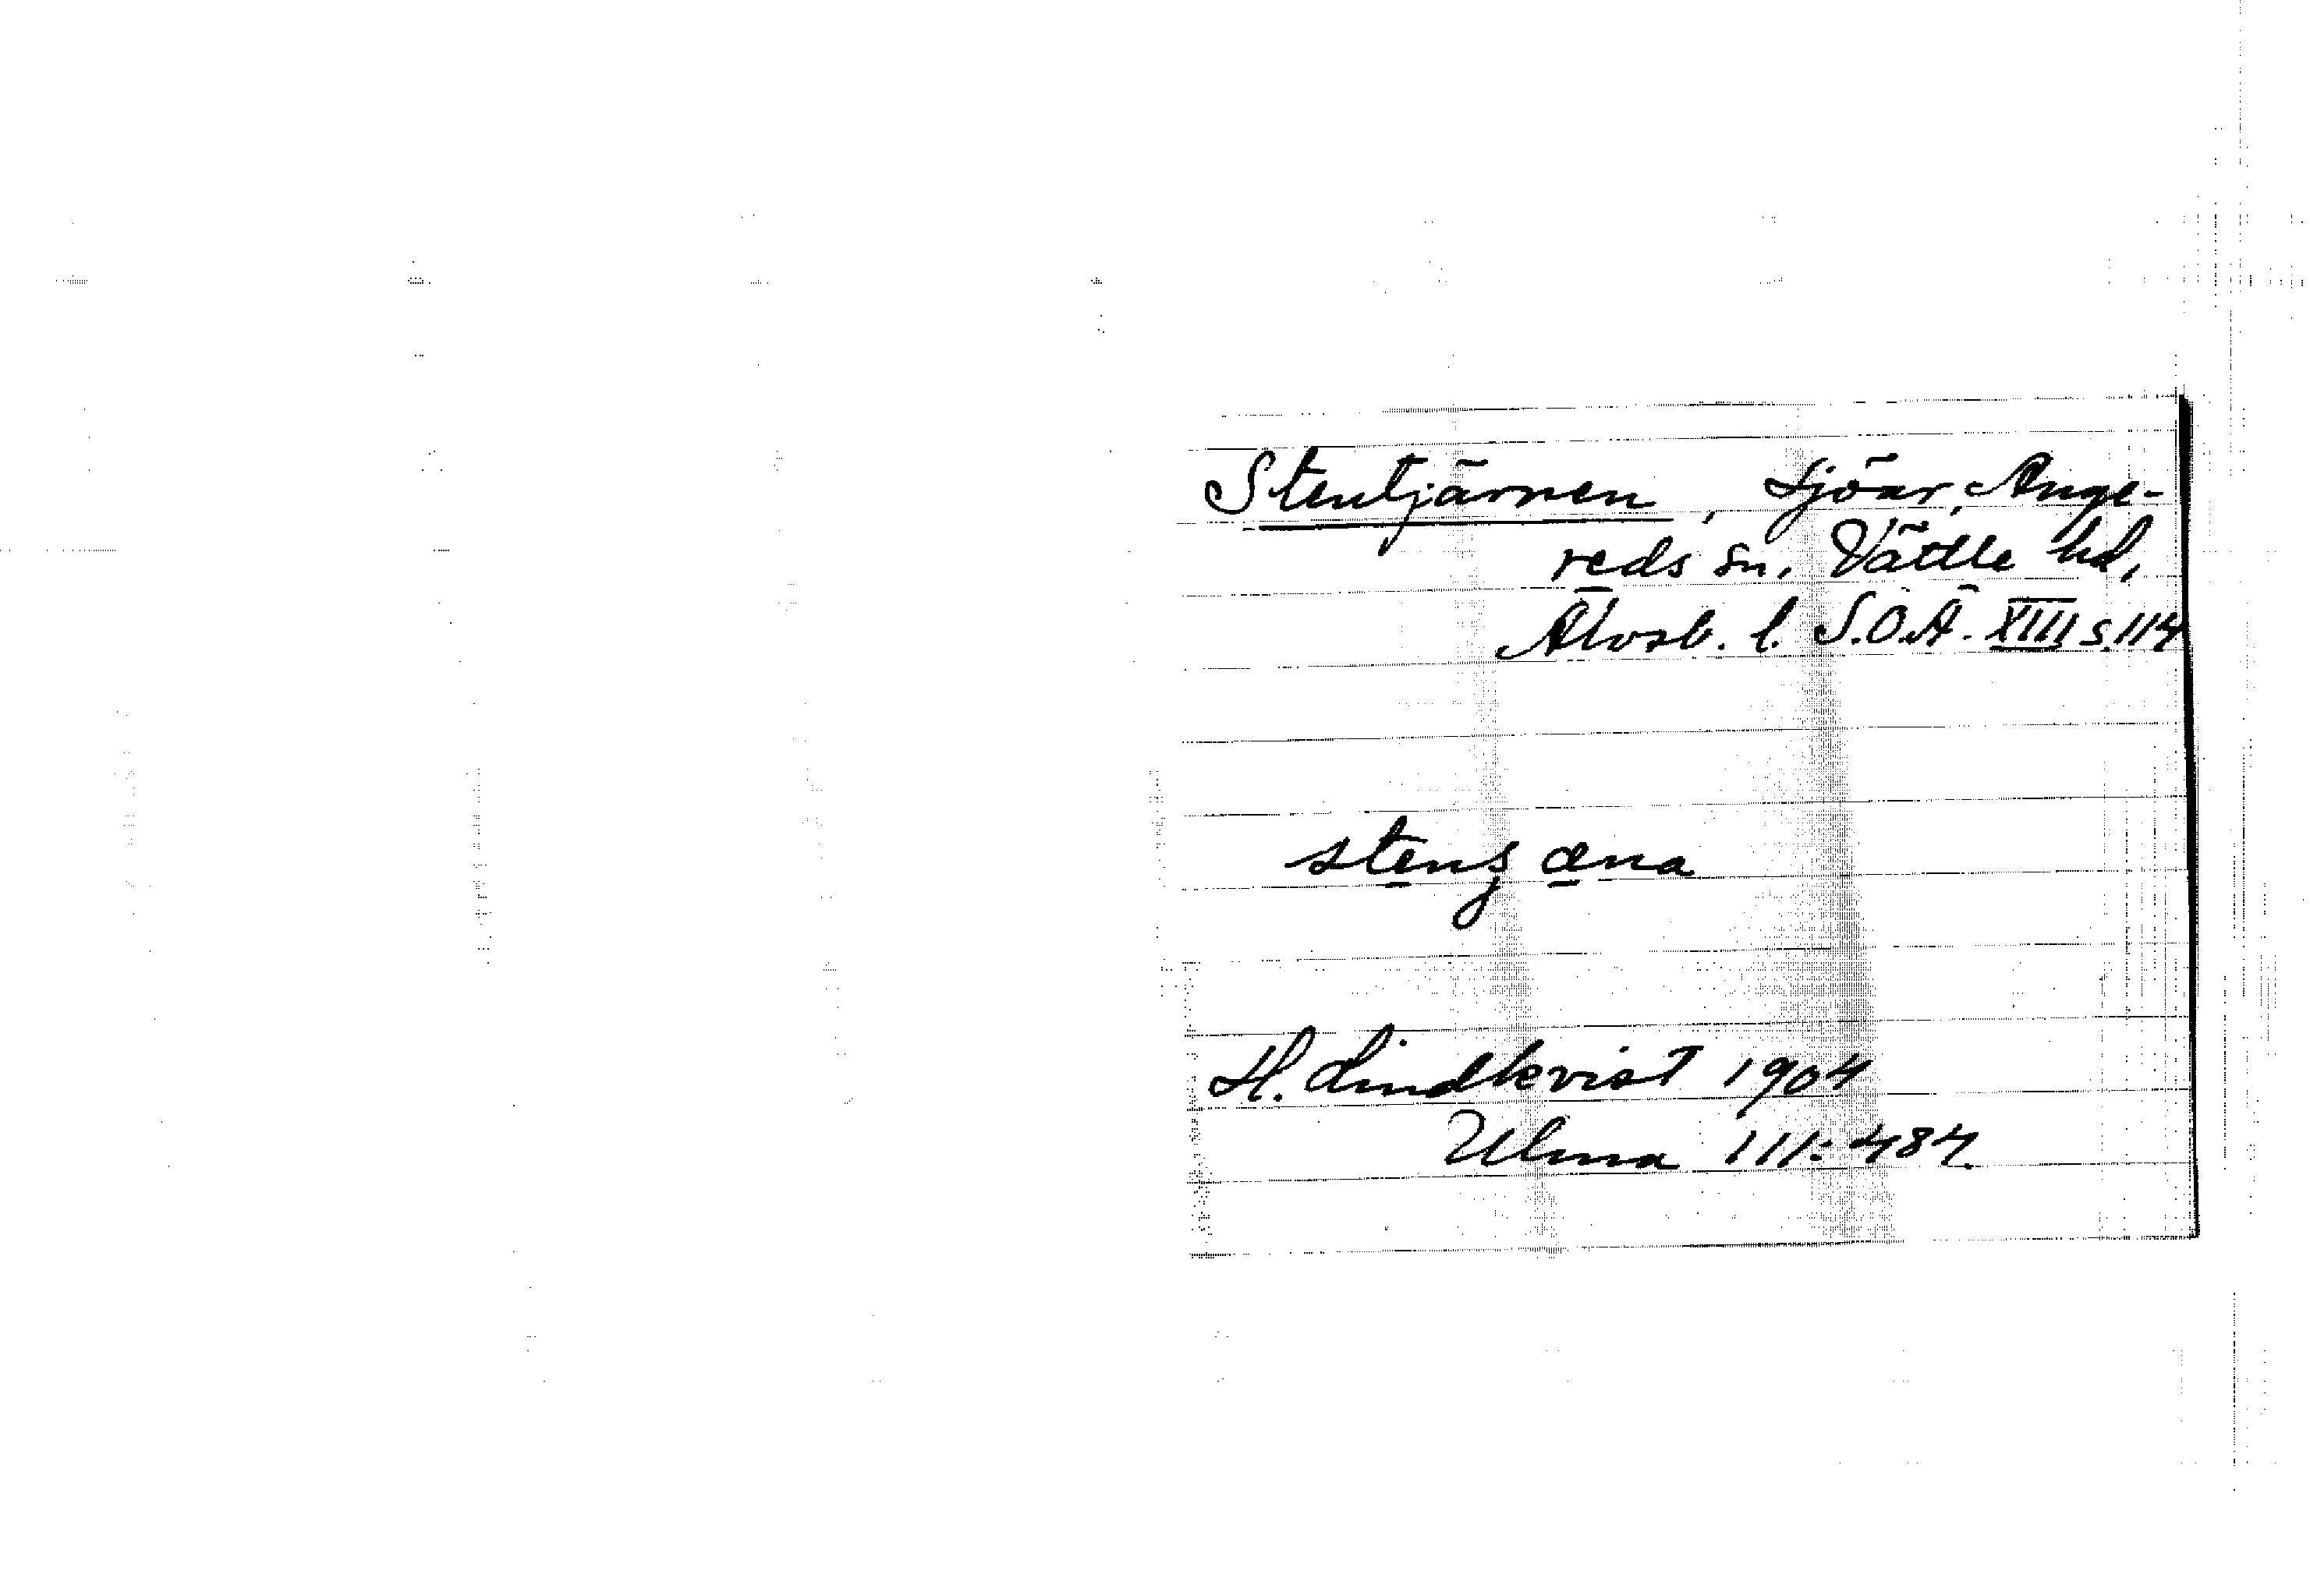 Stentjärnen, sjöar, Ange-
reds sn. Vättle hd,
Älvsb. l. S.O.Ä. XIII s. 114
H. Lindkvist 1904
Ulma 111:484.